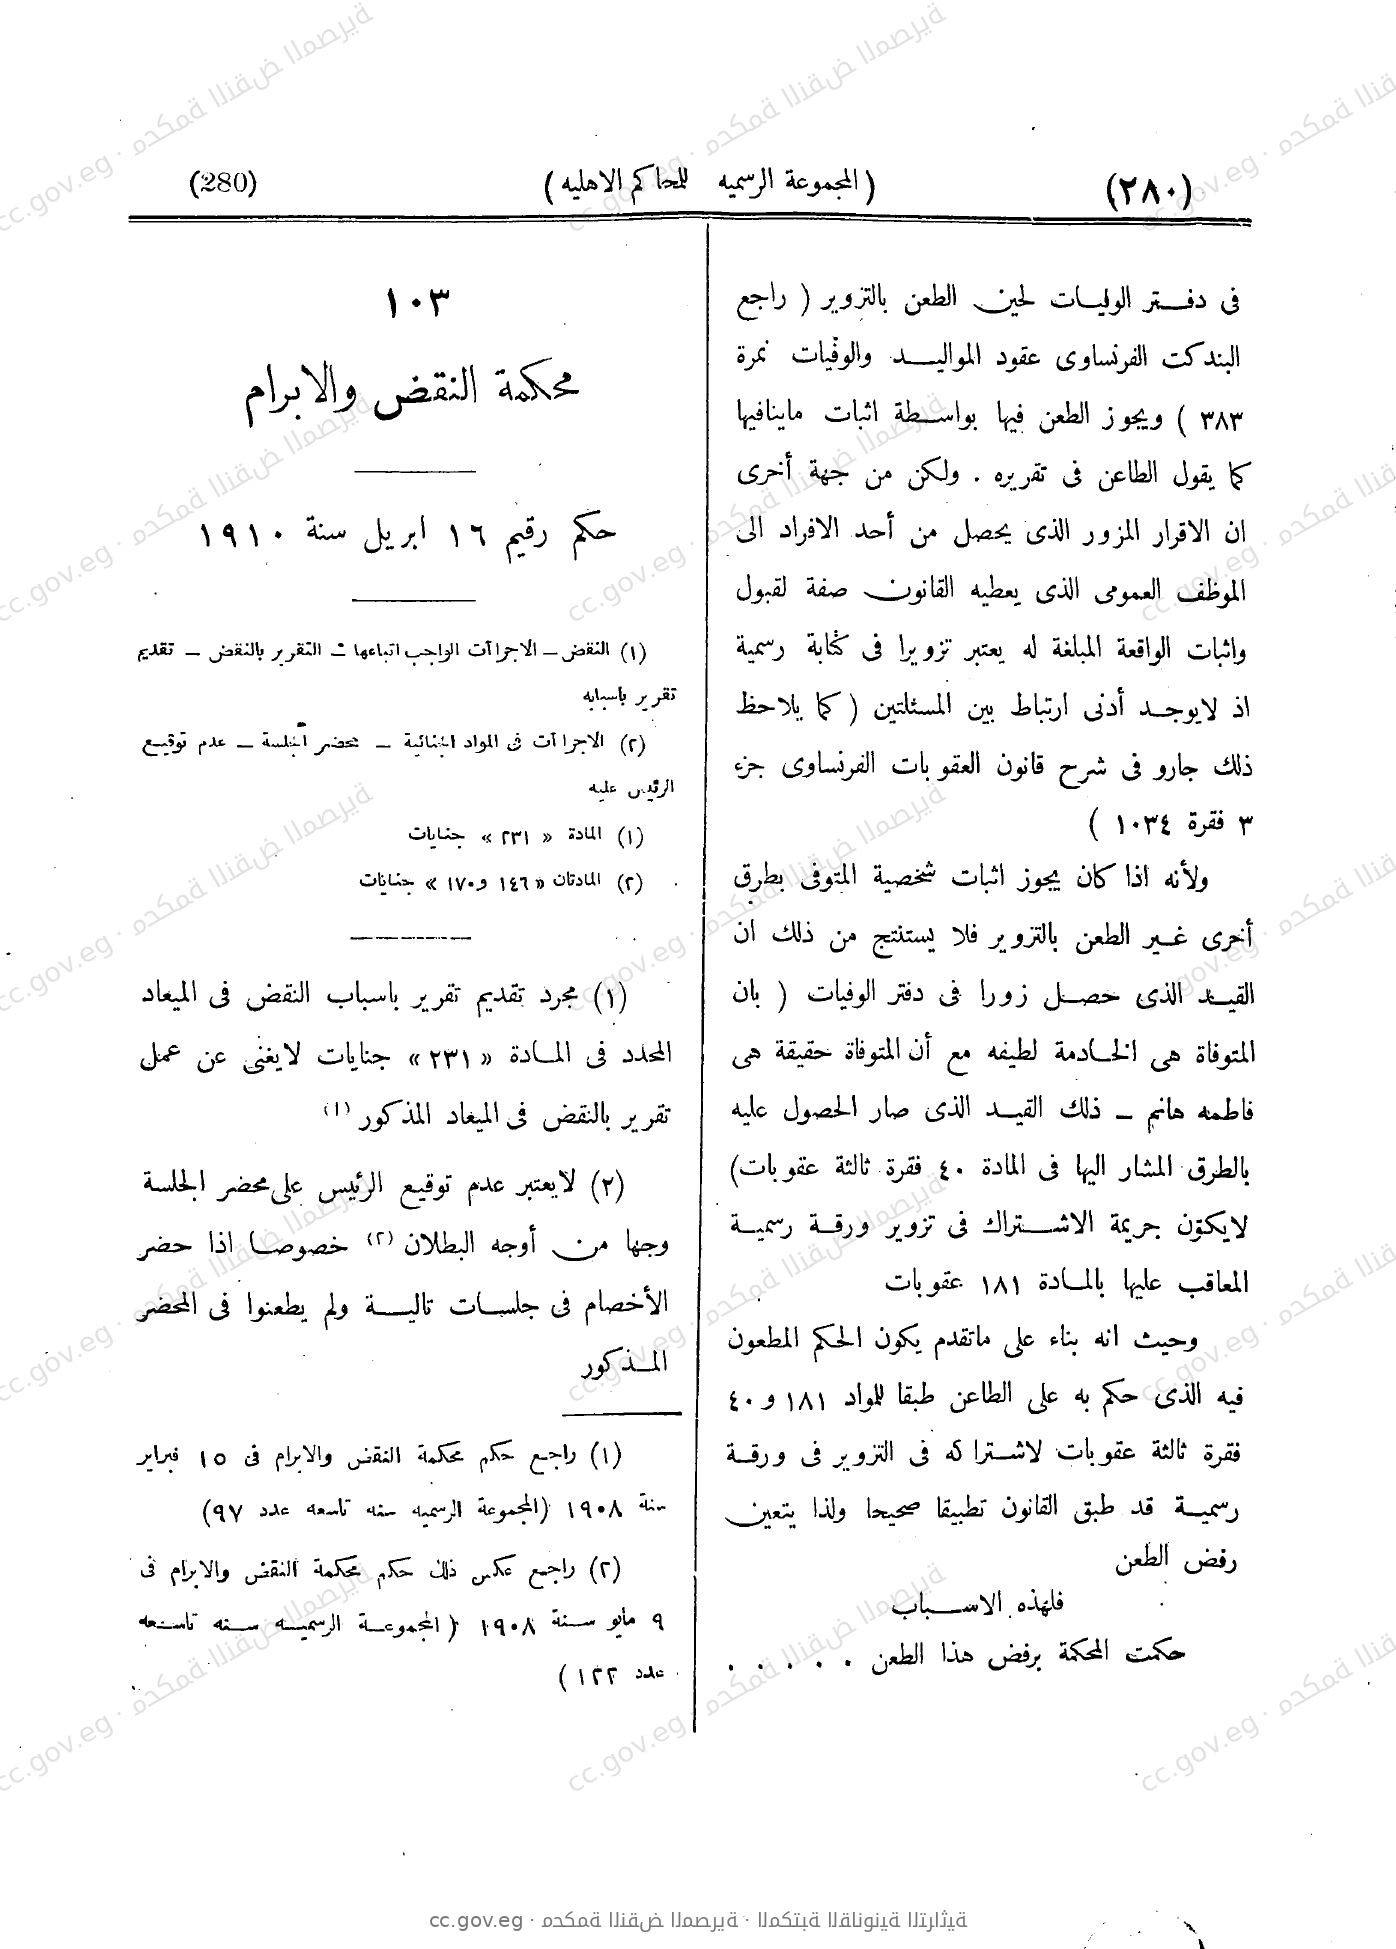 (٢٨٠) (المجموعة الرسميه للمحاكم الاهليه) (280)
فى دفــتر الوليــات لحين الطعن بالتزوير ( راجع
البندكت الفرنساوى عقود المواليــد والوفيات نمرة
٣٨٣ ) ويجوز الطعن فيها بواسـطة اثبات ماينافيها
كما يقول الطاعن فى تقريره . ولكن من جهة أخرى
ان الاقرار المزور الذى يحصل من أحد الافراد الى
الموظف العمومى الذى يعطيه القانون صفة لقبول
واثبات الواقعة المبلغة له يعتبر تزويرا فى كتابة رسمية
اذ لايوجـد أدنى ارتباط بين المسئلتين ( كما يلاحظ
ذلك جارو فى شرح قانون العقوبات الفرنساوى جزء
٣ فقرة ١٠٣٤ )
ولأنه اذا كان يجوز اثبات شخصية المتوفى بطرق
أخرى غـير الطعن بالتزوير فلا يستنتج من ذلك ان
القيـد الذى حصـل زورا فى دفتر الوفيات ( بان
المتوفاة هى الخـادمة لطيفه مع أن المتوفاة حقيقة هى
فاطمه هانم – ذلك القيـد الذى صار الحصول عليه
بالطرق المشار اليها فى المادة ٤٠ فقرة ثالثة عقوبات)
لايكوّن جريمة الاشــتراك فى تزوير ورقـة رسميـة
المعاقب عليها بالمـادة ١٨١ عقوبات
وحيث انه بناء على ماتقدم يكون الحكم المطعون
فيه الذى حكم به على الطاعن طبقا للمواد ١٨١ و٤٠
فقرة ثالثة عقوبات لاشتراكه فى التزوير فى ورقـة
رسميـة قد طبق القانون تطبيقا صحيحا ولذا يتعين
رفض الطعن
فلهذه الاســباب
حكمت المحكمة برفض هذا الطعن . . . . .
١٠٣
محكمة النقض والابرام
حكم رقيم ١٦ ابريل سنة ١٩١٠
(١) النقض – الاجراآت الواجب اتباعها – التقرير بالنقض – تقديم
تقرير باسبابه
(٢) الاجراآت فى المواد الجنائية – محضر الجلسة – عدم توقيع
الرئيس عليه
(١) المادة « ٢٣١ » جنايات
(٢) المادتان « ١٤٦ و١٧٠ » جنايات
(١) مجرد تقديم تقرير باسباب النقض فى الميعاد
المحدد فى المـادة « ٢٣١ » جنايات لايغنى عن عمل
تقرير بالنقض فى الميعاد المذكور (١)
(٢) لايعتبر عدم توقيع الرئيس على محضر الجلسة
وجها من أوجه البطلان (٢) خصوصا اذا حضر
الأخصام فى جلسـات تاليـة ولم يطعنوا فى المحضر
المـذكور
(١) راجع حكم محكمة النقض والابرام فى ١٥ فبراير
سنة ١٩٠٨ (المجموعة الرسميه سنه تاسعه عدد ٩٧)
(٢) راجع عكس ذلك حكم محكمة النقض والابرام فى
٩ مايو سـنة ١٩٠٨ ( المجموعـة الرسميـه سـنه تاسـعه
عدد ١٢٢ )
cc.gov.eg · محكمة النقض المصرية · المكتبة القانونية التراثية